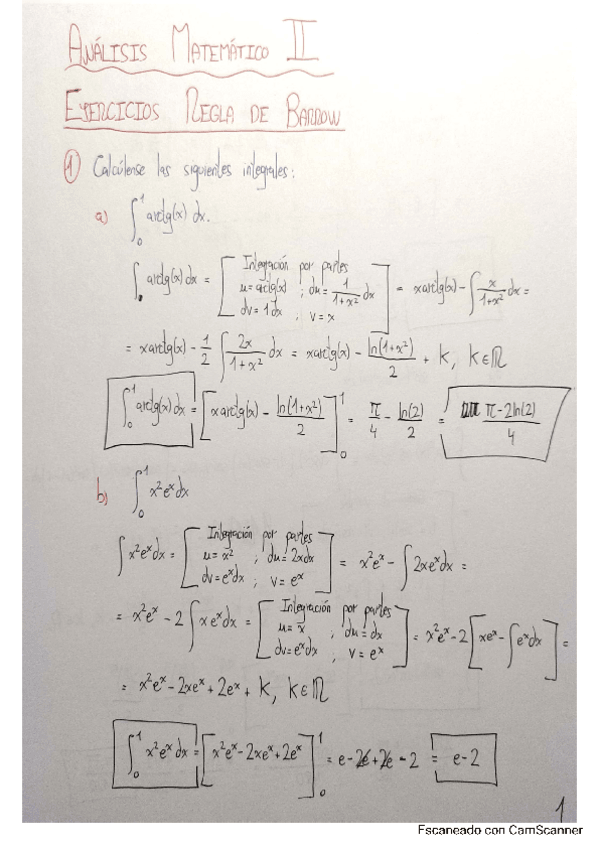 ANÁLISIS MATEMÁTICO II
EJERCICIOS REGLA DE BARROW
1 Calcúlense las siguientes integrales:
a) ∫₀¹ arctg(x) dx.
∫ arctg(x) dx = [Integración por partes
u = arctg(x) ; du = 1/(1+x²) dx
dv = 1dx ; v = x] = x arctg(x) - ∫ x/(1+x²) dx =
= x arctg(x) - 1/2 ∫ 2x/(1+x²) dx = x arctg(x) - ln(1+x²)/2 + K, K∈ℝ
∫₀¹ arctg(x) dx = [x arctg(x) - ln(1+x²)/2]₀¹ = π/4 - ln(2)/2 = (π-2ln(2))/4
b) ∫₀¹ x²eˣdx
∫ x²eˣdx = [Integración por partes
u = x² ; du = 2xdx
dv = eˣdx ; v = eˣ] = x²eˣ - ∫ 2xeˣdx =
= x²eˣ - 2 ∫ xeˣdx = [Integración por partes
u = x ; du = dx
dv = eˣdx ; v = eˣ] = x²eˣ - 2 [xeˣ - ∫ eˣdx] =
= x²eˣ - 2xeˣ + 2eˣ + K, K∈ℝ
∫₀¹ x²eˣ dx = [x²eˣ - 2xeˣ + 2eˣ]₀¹ = e - 2e + 2e - 2 = e-2
1
Escaneado con CamScanner